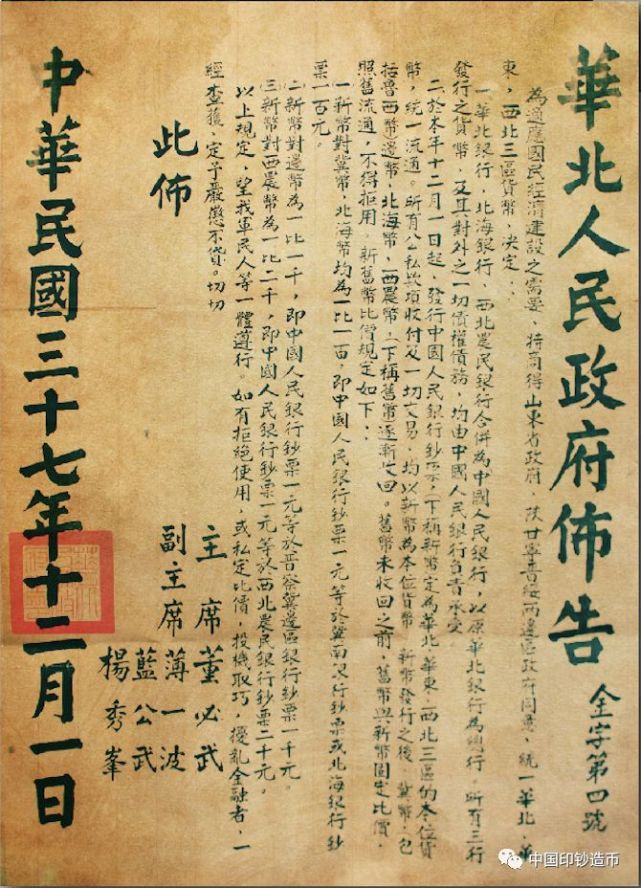 華北人民政府佈告
金字第四號
為適應國民經濟建設之需要，特商得山東省政府，陝甘寧晉綏兩邊區政府同意，統一華北，華
東，西北三區貨幣，決定：
一華北銀行，北海銀行，西北農民銀行合併為中國人民銀行，以原華北銀行為總行。所有三行
發行之貨幣，及其對外之一切債權債務，均由中國人民銀行負責承受。
二於本年十二月一日起，發行中國人民銀行鈔票（下稱新幣）定為華北，華東，西北三區的本位貨
幣，統一流通。所有公私款項收付及一切交易，均以新幣為本位貨幣。新幣發行之後，冀幣，包
括魯西幣，邊幣，北海幣，西農幣，（下稱舊幣）逐漸收回。舊幣未收回之前，舊幣與新幣固定比價，
照舊流通，不得拒用。新舊幣比價規定如下：
一新幣對冀幣，北海幣均為一比一百，即中國人民銀行鈔票一元等於冀南銀行鈔票或北海銀行鈔
票一百元。
二新幣對邊幣為一比一千，即中國人民銀行鈔票一元等於晉察冀邊區銀行鈔票一千元。
三新幣對西農幣為一比二千，即中國人民銀行鈔票一元等於西北農民銀行鈔票二千元。
以上規定，望我軍民人等一體遵行。如有拒絕使用，或私定比價，投機取巧，擾亂金融者，一
經查獲，定予嚴懲不貸。切切
此佈
主席 董必武
副主席 薄一波
藍公武
楊秀峯
中華民國三十七年十二月一日
中国印钞造币